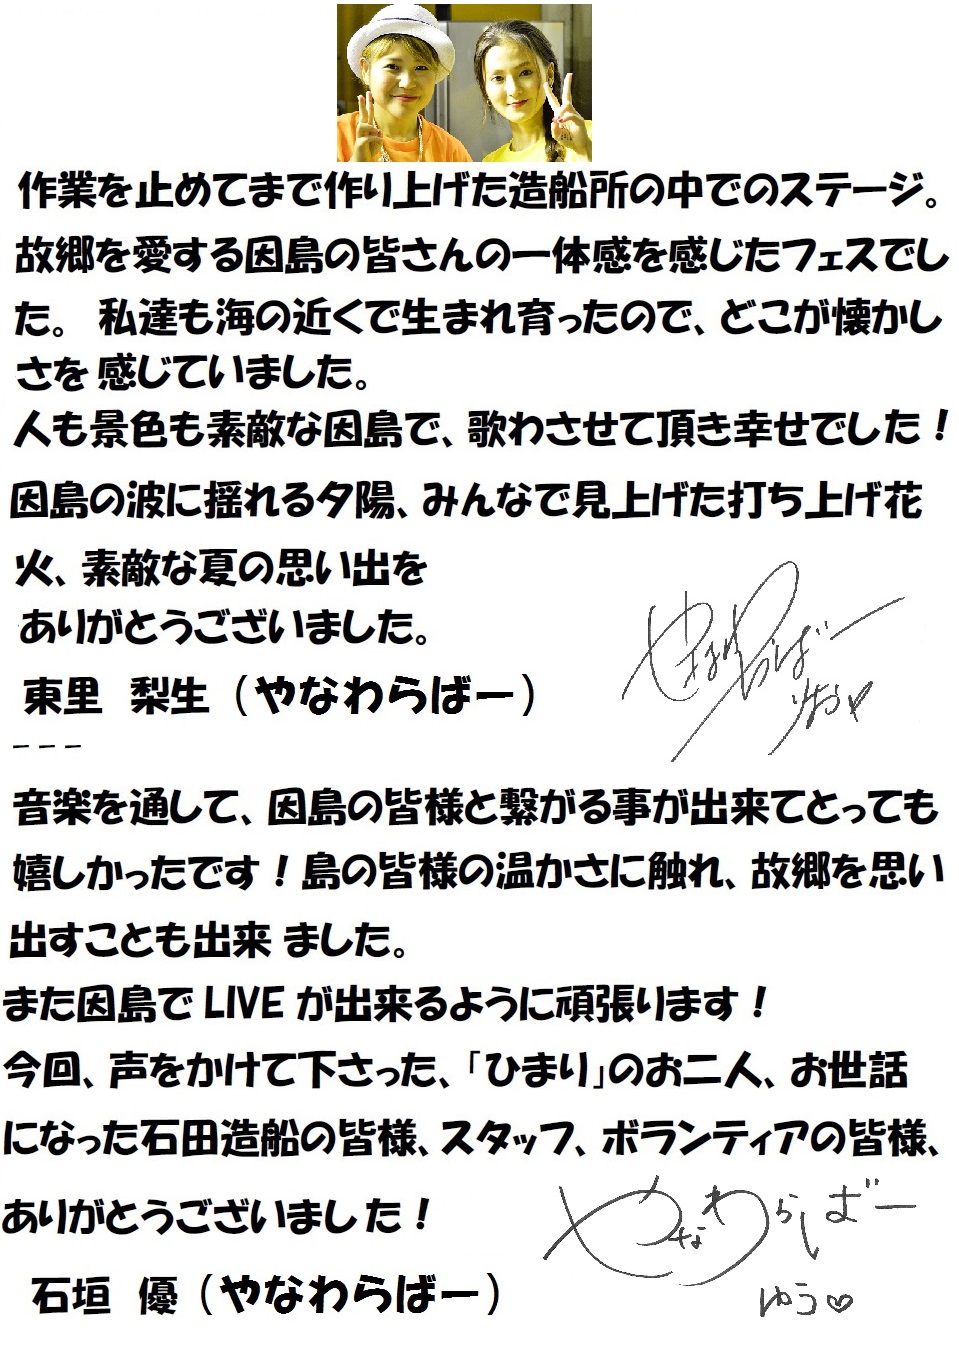 作業を止めてまで作り上げた造船所の中でのステージ。
故郷を愛する因島の皆さんの一体感を感じたフェスでし
た。 私達も海の近くで生まれ育ったので、どこが懐かし
さを 感じていました。
人も景色も素敵な因島で、歌わさせて頂き幸せでした！
因島の波に揺れる夕陽、みんなで見上げた打ち上げ花
火、素敵な夏の思い出を
ありがとうございました。
やなわらばー
りお
東里 梨生（やなわらばー）
---
音楽を通して、因島の皆様と繋がる事が出来てとっても
嬉しかったです！島の皆様の温かさに触れ、故郷を思い
出すことも出来 ました。
また因島で LIVE が出来るように頑張ります！
今回、声をかけて下さった、「ひまり」のお二人、お世話
になった石田造船の皆様、スタッフ、ボランティアの皆様、
ありがとうございました！
やなわらばー
ゆう♡
石垣 優（やなわらばー）